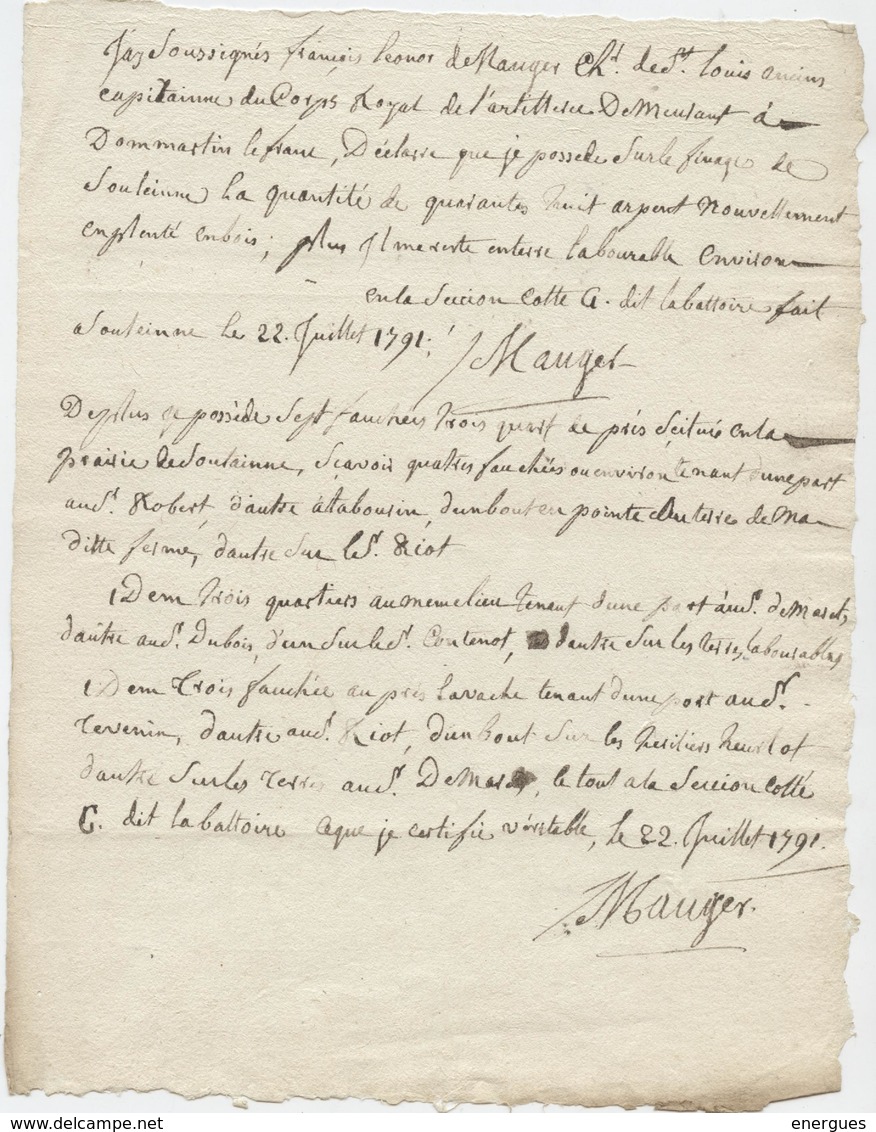 J'ay Soussignés françois Leonor de Mauger Chr. de St. Louis anciens
capitainne du Corps Royal de l'artillerie DeMeurant à
Dommartin le franc, Déclarre que je possede Sur le finage de
Souleinne La quantité de quarantes huit arpent nouvellement
enplenté en bois; plus Jl me reste en terre labourable Environ
en la Seccion Cotte G. dit la battoire fait
a Souleinne le 22. Juillet 1791.
Mauger
De plus je possède Sept fauchées trois quart de prés Scitués en la
prairie de Soulainne, Sçavoir quatres fauchées ou environ tenant d'une part
au Sr. Robert, d'autre à tabourin, d'un bout en pointe de Ma
ditte ferme, d'autre Sur le Sr. Riot
IDem trois quartiers au meme lieu tenant d'une part au Sr. de Marets
d'aûtre au Sr. Dubois, d'un Sur le Sr. Contenot, d'autre Sur les terres labourables
IDem Trois fauchée au prés la vache tenant d'une part au Sr.
Tevenin, d'autre au Sr. Riot, d'un bout Sur les heritiers heurlot
d'autre Sur les Terres au Sr. De Marets, le tout a la Seccion Cotté
G. dit la battoire ce que je certifie véritable, le 22. Juillet 1791.
Mauger.
energues